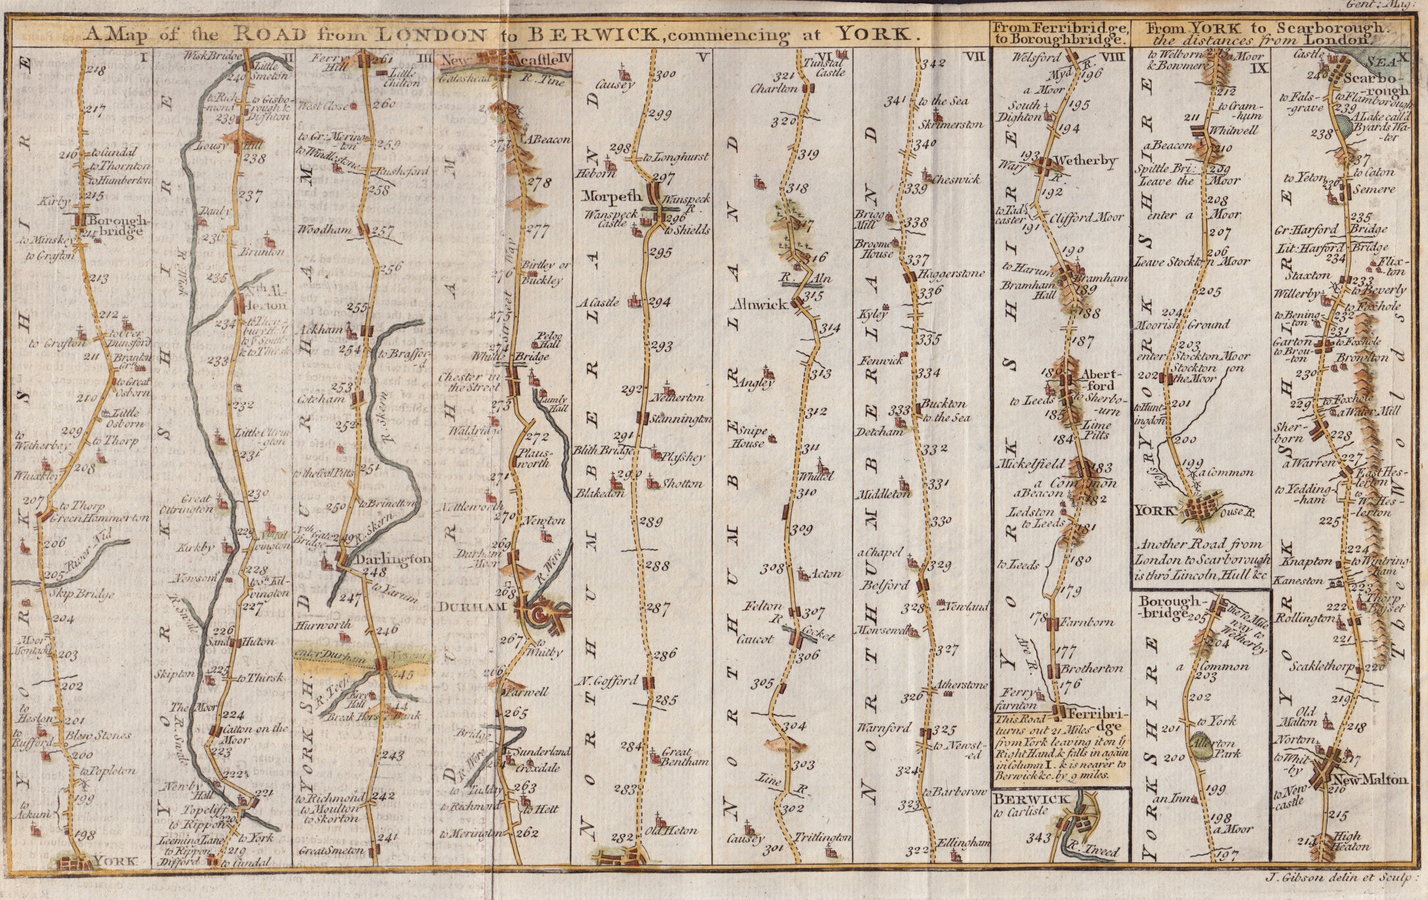 Gent: Mag:
A Map of the ROAD from LONDON to BERWICK, commencing at YORK.
I
218
217
216
to Cundal
to Thornton
to Humberton
215
Kirby
Borough-
bridge
to Minskey
to Grafton
213
212
to Over
Dunsford
to Grafton
211
Branton
Grn
to Great
Osborn
210
Little
Osborn
209
to
Wetherby
to Thorp
208
Whixley
207
to Thorp
Green Hammerton
206
River Nid
205
Skip Bridge
204
Moor
Monton
203
202
to
Heslon
201
Blow Stones
to
Rufford
200
to Popleton
199
to
Ackum
198
YORK
YORKSHIRE
II
Wisk Bridge
Little
Smeton
240
to Rich-
mond
to Gisbo-
rough &
Dighton
239
Lousy Hill
238
237
Danby
236
Brunton
R. Wisk
235
Nth Al-
lerton
234
to Thirsk
233
232
Little Otrin-
gton
231
230
Great
Otrington
229
Kirkby
228
Newsom
227
R. Swale
226
Sand Huton
225
Skipton
to Thirsk
The Moor
224
Catton on the
Moor
223
R. Swale
222
Newby
Hall
221
Topcliff
220
to Rippon
to York
Leeming Lane
219
to Rippon
Difford
to Cundal
YORKSHIRE
III
Ferry
Hill
261
Little
Chilton
West Close
260
to Gr: Mering-
ton
259
to Windleston
Rusheford
258
Woodham
257
256
255
Ackham
254
to Braffer-
d
253
Cotcham
R. Skern
252
251
to the Coal Pitts
250
to Brinetton
R. Skern
249
Nth Gate
Bridge
Darlington
248
to Yarum
247
Hurworth
246
enter Durham
245
R. Tees
Hall
Break Horse Bank
243
242
to Richmond
to Moulton
to Skorton
241
Great Smeton
DURHAM
YORKSH.
IV
Newcastle
Gateshead
R. Tine
A Beacon
278
277
Birtley or
Buckley
276
275
Street Way
Pelog
Hall
274
Whitle Bridge
Chester in
the Street
273
Lumly
Hall
Waldridge
272
Plaus-
worth
271
Nettleworth
270
Newton
269
Durham
Moor
R. Ware
268
DURHAM
267
to
Whitby
266
Farwell
265
Bridge
R. Ware
Sunderland
Croxdale
to Tuddy
263
to Richmond
to Hett
to Merington
262
DURHAM
V
Causey
300
299
298
to Longhurst
Heborn
297
Morpeth
Wanspeck
R.
Wanspeck
Castle
296
to Shields
295
A Castle
294
293
292
Netherton
Stannington
291
Blith Bridge
Plashey
290
Blakedon
Shotton
289
288
287
286
N. Gofford
285
284
Great
Bentham
283
Old Heton
282
NORTHUMBERLAND
VI
Tunstal
Castle
321
Charlton
320
319
318
317
316
R. Aln
315
Alnwick
314
313
Angley
312
Snipe
House
311
Whittel
310
309
308
Acton
Felton
307
R. Cocket
Caucot
306
305
304
303
Line R.
302
Causey
Tritlington
301
NORTHUMBERLAND
VII
342
341
to the Sea
Skrimerston
340
Cheswick
339
Brigg
Mill
338
Broome
House
337
Haggerstone
336
Kyley
335
Fenwick
334
Buckton
333
to the Sea
Detcham
332
331
Middleton
330
a Chapel
329
Belford
328
Newland
Mowsenwell
327
Atherstone
326
325
Warnford
to Newst-
ed
324
to Barborow
323
322
Ellingham
NORTHUMBERLAND
From Ferribridge,
to Boroughbridge.
VIII
Welsford
Myd R.
196
a Moor
195
South
Dighton
194
193
Wetherby
Warf R.
192
to Tad-
caster
Clifford Moor
191
190
to Harum
Bramham
Bramham
Hall
189
188
187
186
Abert-
ford
to Leeds
to Sherbo-
urn
185
Lime
Pitts
184
Mickelfield
183
a Common
a Beacon
182
Ledston
to Leeds
181
180
to Leeds
179
178
Farnborn
Are R.
177
Brotherton
176
Ferry
farnton
Ferribri-
dge
YORKSHIRE
This Road
turns out 21 Miles
from York leaving it on ye
Right Hand & falls in again
in Column I. & is nearer to
Berwick &c. by 9 miles.
BERWICK
to Carlisle
343
R. Tweed
From YORK to Scarborough.
the distances from London.
IX
to Welborn
& Bowmer
213
a Moor
212
to Cram-
hum
211
Whitwell
a Beacon
210
Spittle Bri:
209
Leave the Moor
208
enter a Moor
207
206
Leave Stockton Moor
205
204
Moorish Ground
203
enter Stockton Moor
Stockton on
202
the Moor
to Hunt-
ingdon
201
200
Foss R.
199
a Common
YORK
Ouse R.
Another Road from
London to Scarborough
is thro' Lincoln, Hull &c
YORKSHIRE
Borough-
bridge
205
The Ten Mile
way to
Wetherby
204
a Common
203
202
to York
201
Allerton
Park
200
199
an Inn
198
a Moor
197
YORKSHIRE
X
SEA
Castle
240
Scarbo-
rough
to Fals-
grave
to Flamborough
239
A Lake call'd
Byards Wa-
ter
238
237
to Caton
to Yoton
236
Semere
235
Gr: Harford Bridge
Lit: Harford Bridge
234
Flix-
ton
Staxton
233
to Beverly
Willerby
Foxhole
to Bening-
ton
232
231
Garton
Foxhole
to Brou-
ton
Brompton
230
to Foxhole
229
a Water Mill
Sher-
born
228
a Warren
227
East Hes-
lerton
to Yedding-
ham
W. Hes-
lerton
225
224
Knapton
to Wintring-
ham
Kaneston
223
Thorp
Basset
222
Rollington
221
Scaklethorp
220
219
Old
Malton
218
Norton
to Whit-
by
217
New Malton
to New-
castle
216
215
High
Heaton
214
YORKSHIRE
The Wolds
J. Gibson delin et Sculp: